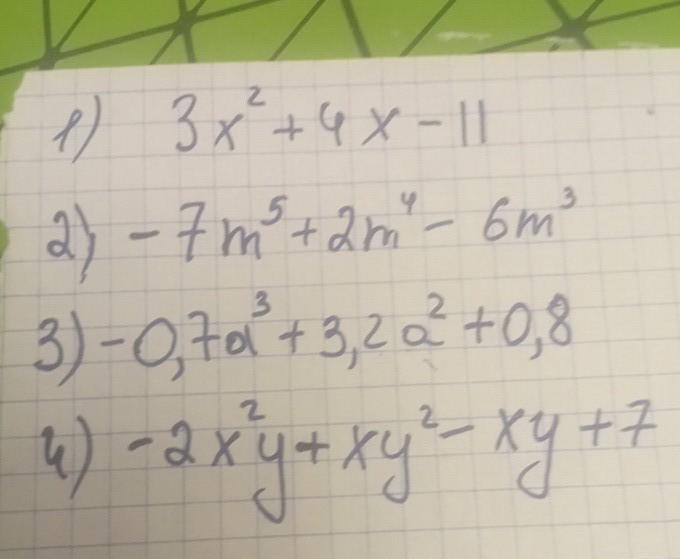 1) 3x² + 4x - 11
2) - 7m⁵ + 2m⁴ - 6m³
3) - 0,7a³ + 3,2a² + 0,8
4) - 2x²y + xy² - xy + 7